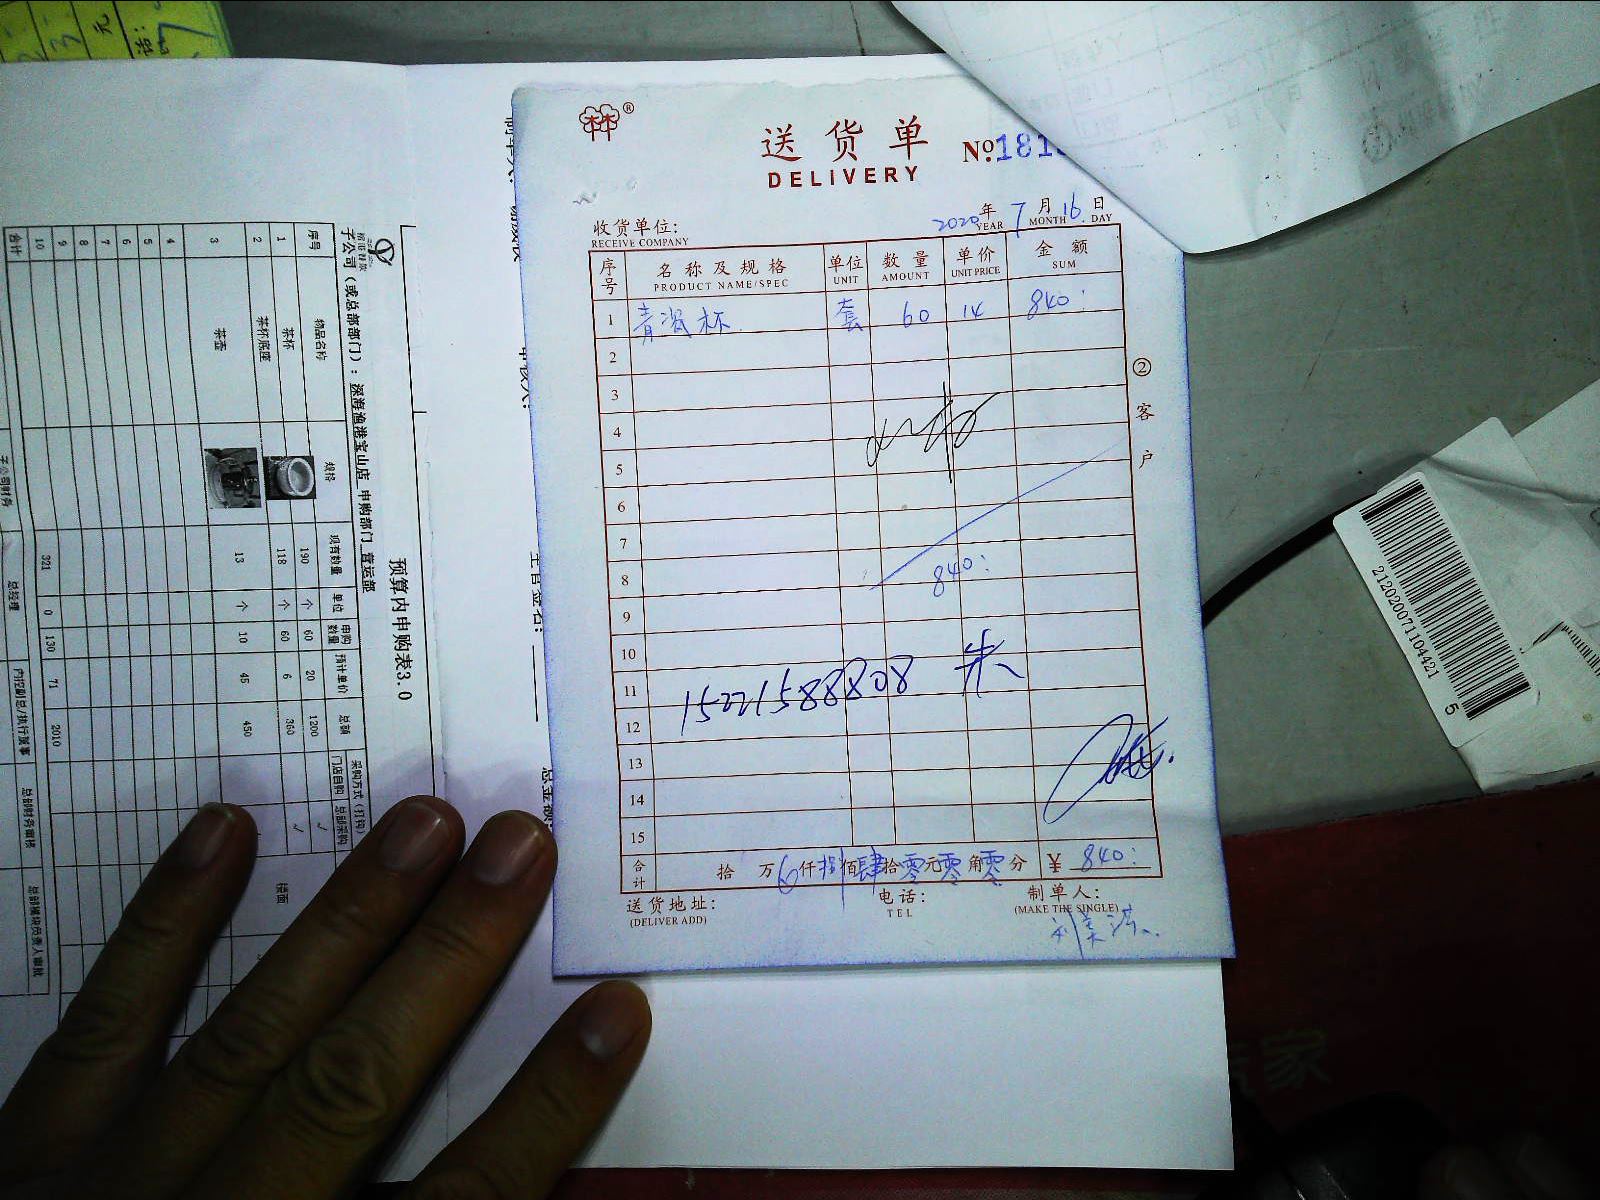 元
送货单
DELIVERY
收货单位:
RECEIVE COMPANY
2020年 7月 16日
YEAR MONTH DAY
序号 名称及规格 单位 数量 单价 金额
PRODUCT NAME/SPEC UNIT AMOUNT UNIT PRICE SUM
1 青瓷杯 套 60 14 840:
2
3
4
5
6
7
8 840:
9
10
11 15221588808 朱
12
13
14
15
合计 拾 万 仟 佰肆拾零元零角零分 ¥ 840:
送货地址: 电话: 制单人:
(DELIVER ADD) TEL (MAKE THE SINGLE)
② 客户
预算内申购表3.0
子公司(或总部部门):深海渔港宝山店 申购部门 营运部
序号 物品名称 规格 现有数量 单位 申购数量 预计单价 总额 采购方式(打钩)
门店自购 总部采购
1 茶杯 190 个 60 20 1200 √
2 茶杯底座 118 个 60 6 360 √
3 茶壶 13 个 10 45 450
4
5
6
7
8
9
10
合计 321 0 130 71 2010
子公司财务 总经理 内控副总/执行董事 总部财务审核 总部模块负责人审批
楼面
主管签名:
212020071104421
5
家